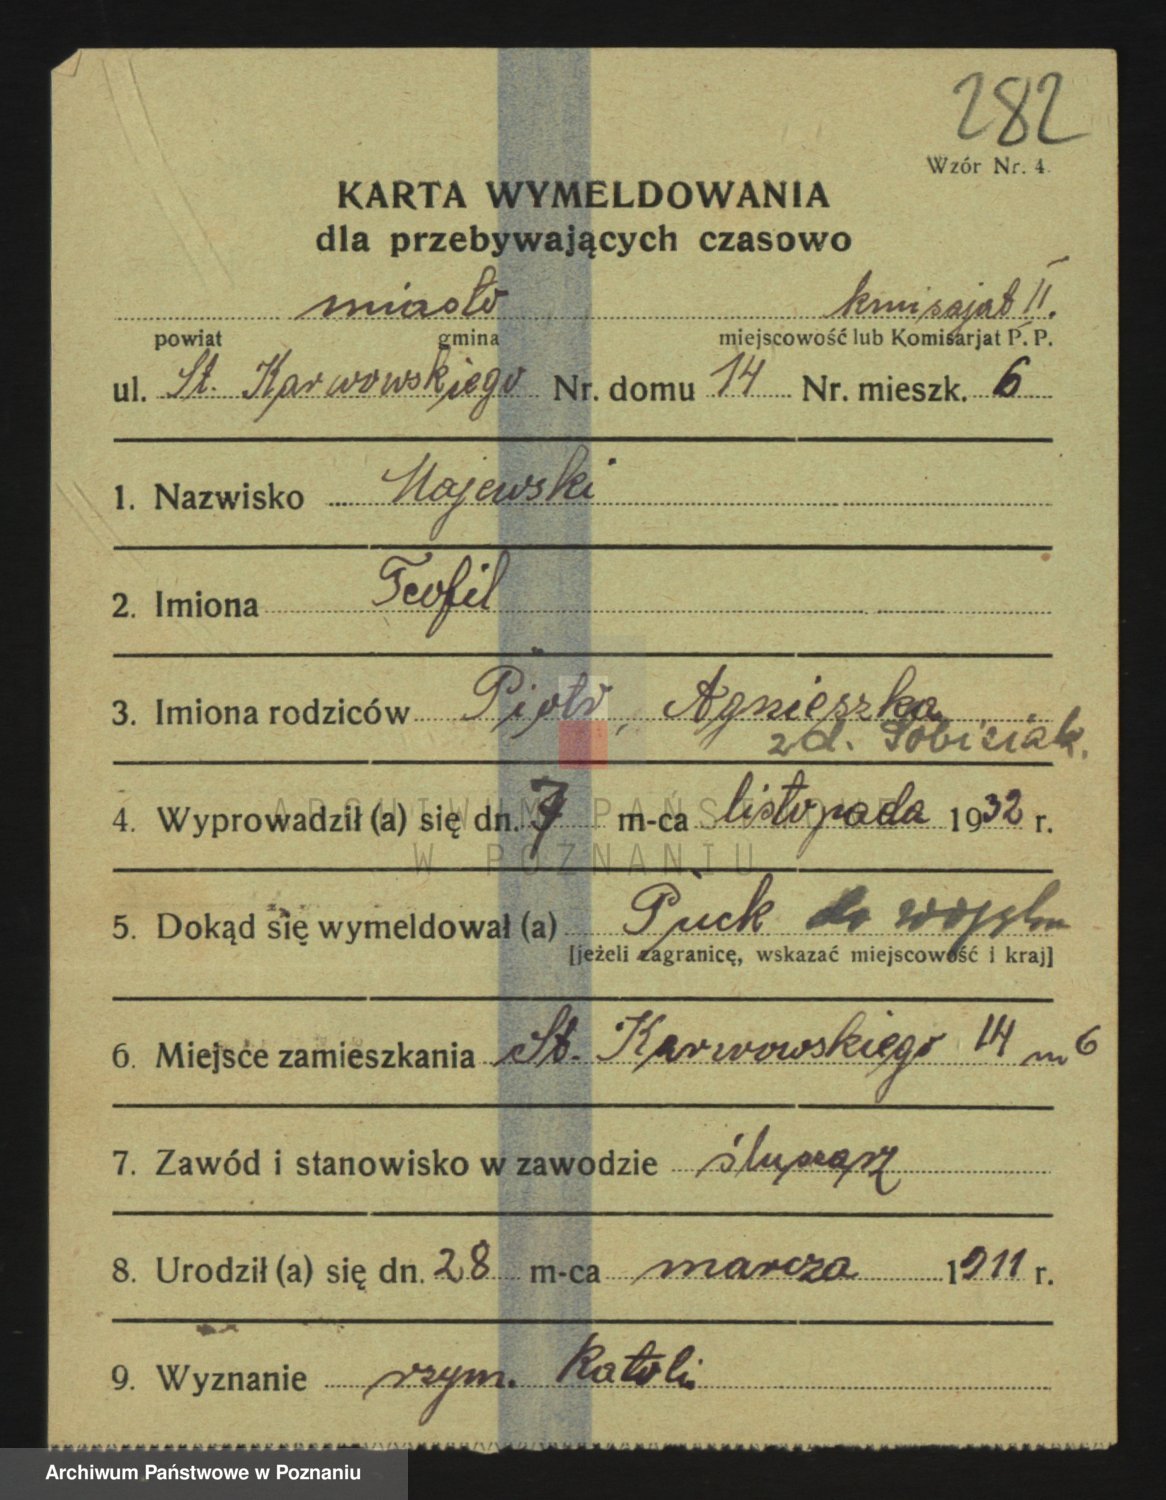 282
Wzór Nr. 4.
KARTA WYMELDOWANIA
dla przebywających czasowo
miasto kmisajat II.
powiat gmina miejscowość lub Komisarjat P. P.
ul. St. Karwowskiego Nr. domu 14 Nr. mieszk. 6
1. Nazwisko Majewski
2. Imiona Teofil
3. Imiona rodziców Piotr, Agnieszka
zd. Sobisiak.
4. Wyprowadził (a) się dn. 7 m-ca listopada 1932 r.
ARCHIWUM PAŃSTWOWE
W POZNANIU
5. Dokąd się wymeldował (a) Puck do wojska
[jeżeli zagranicę, wskazać miejscowość i kraj]
6. Miejsce zamieszkania St. Karwowskiego 14 m 6
7. Zawód i stanowisko w zawodzie ślusarz
8. Urodził (a) się dn. 28 m-ca marcza 1911 r.
9. Wyznanie rzym. Katoli.
Archiwum Państwowe w Poznaniu